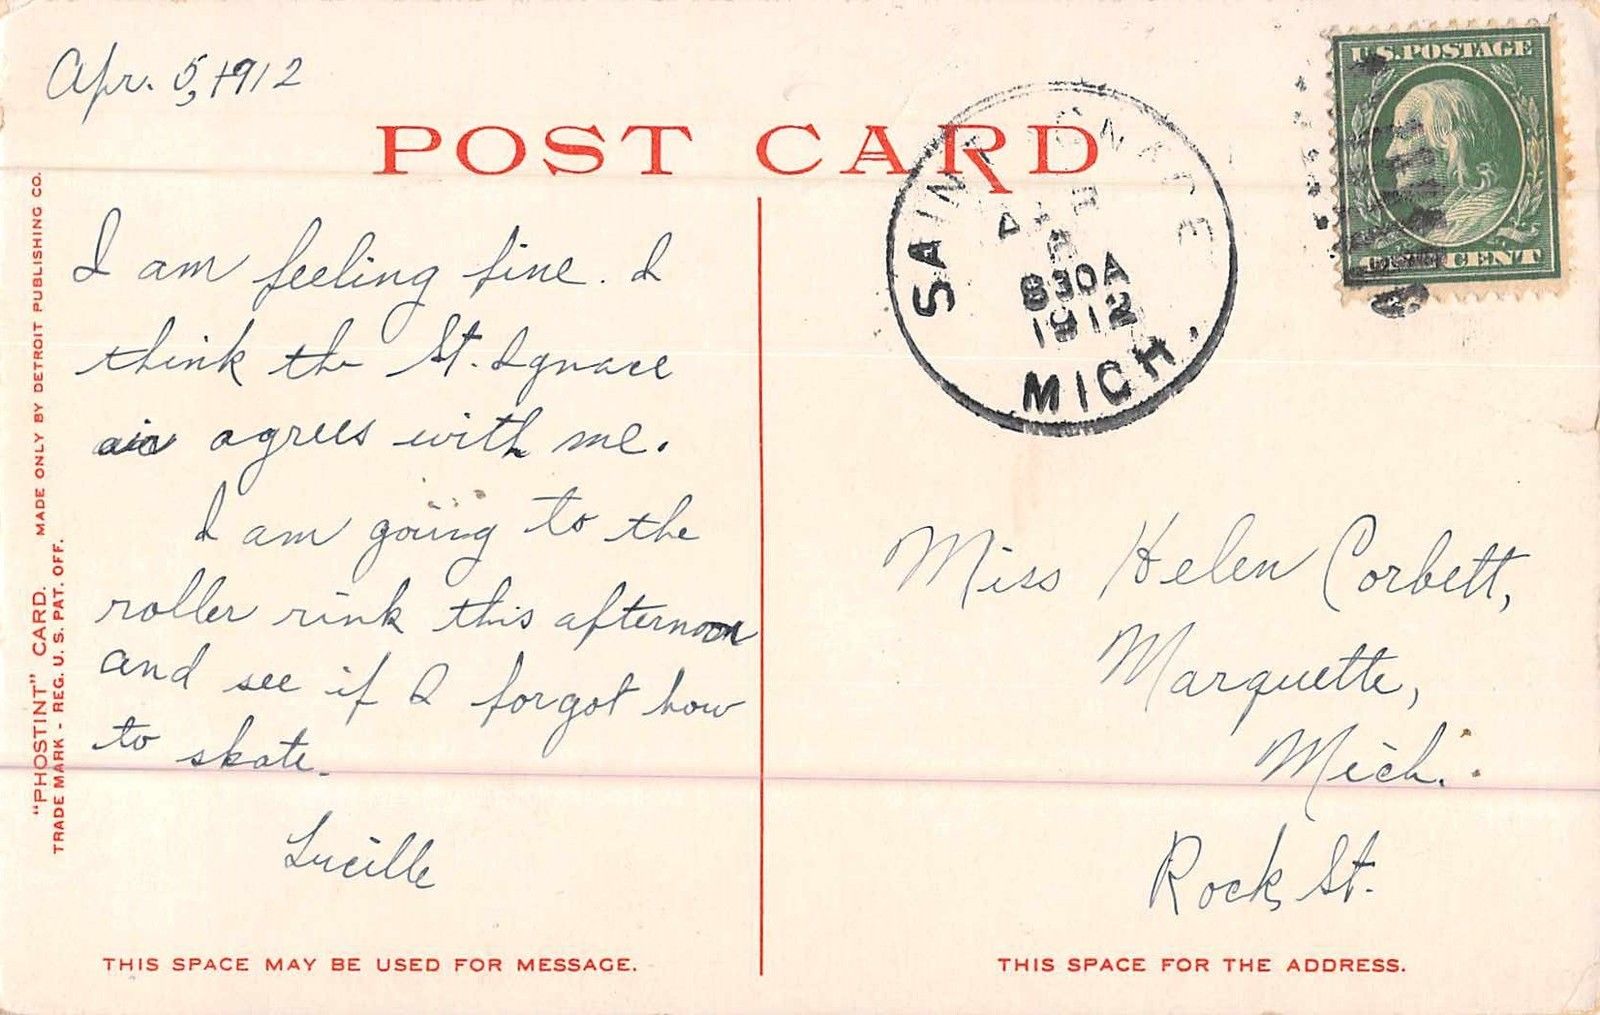 Apr. 5, 1912
POST CARD
U.S. POSTAGE
CENT
SAINT IGNACE
APR
830A
1912
MICH.
"PHOSTINT" CARD. MADE ONLY BY DETROIT PUBLISHING CO.
TRADE MARK - REG. U. S. PAT. OFF.
I am feeling fine. I
think the St. Ignace
air agrees with me.
I am going to the
roller rink this afternoon
and see if I forgot how
to skate.
Lucille
Miss Helen Corbett,
Marquette,
Mich.
Rock St.
THIS SPACE MAY BE USED FOR MESSAGE.
THIS SPACE FOR THE ADDRESS.